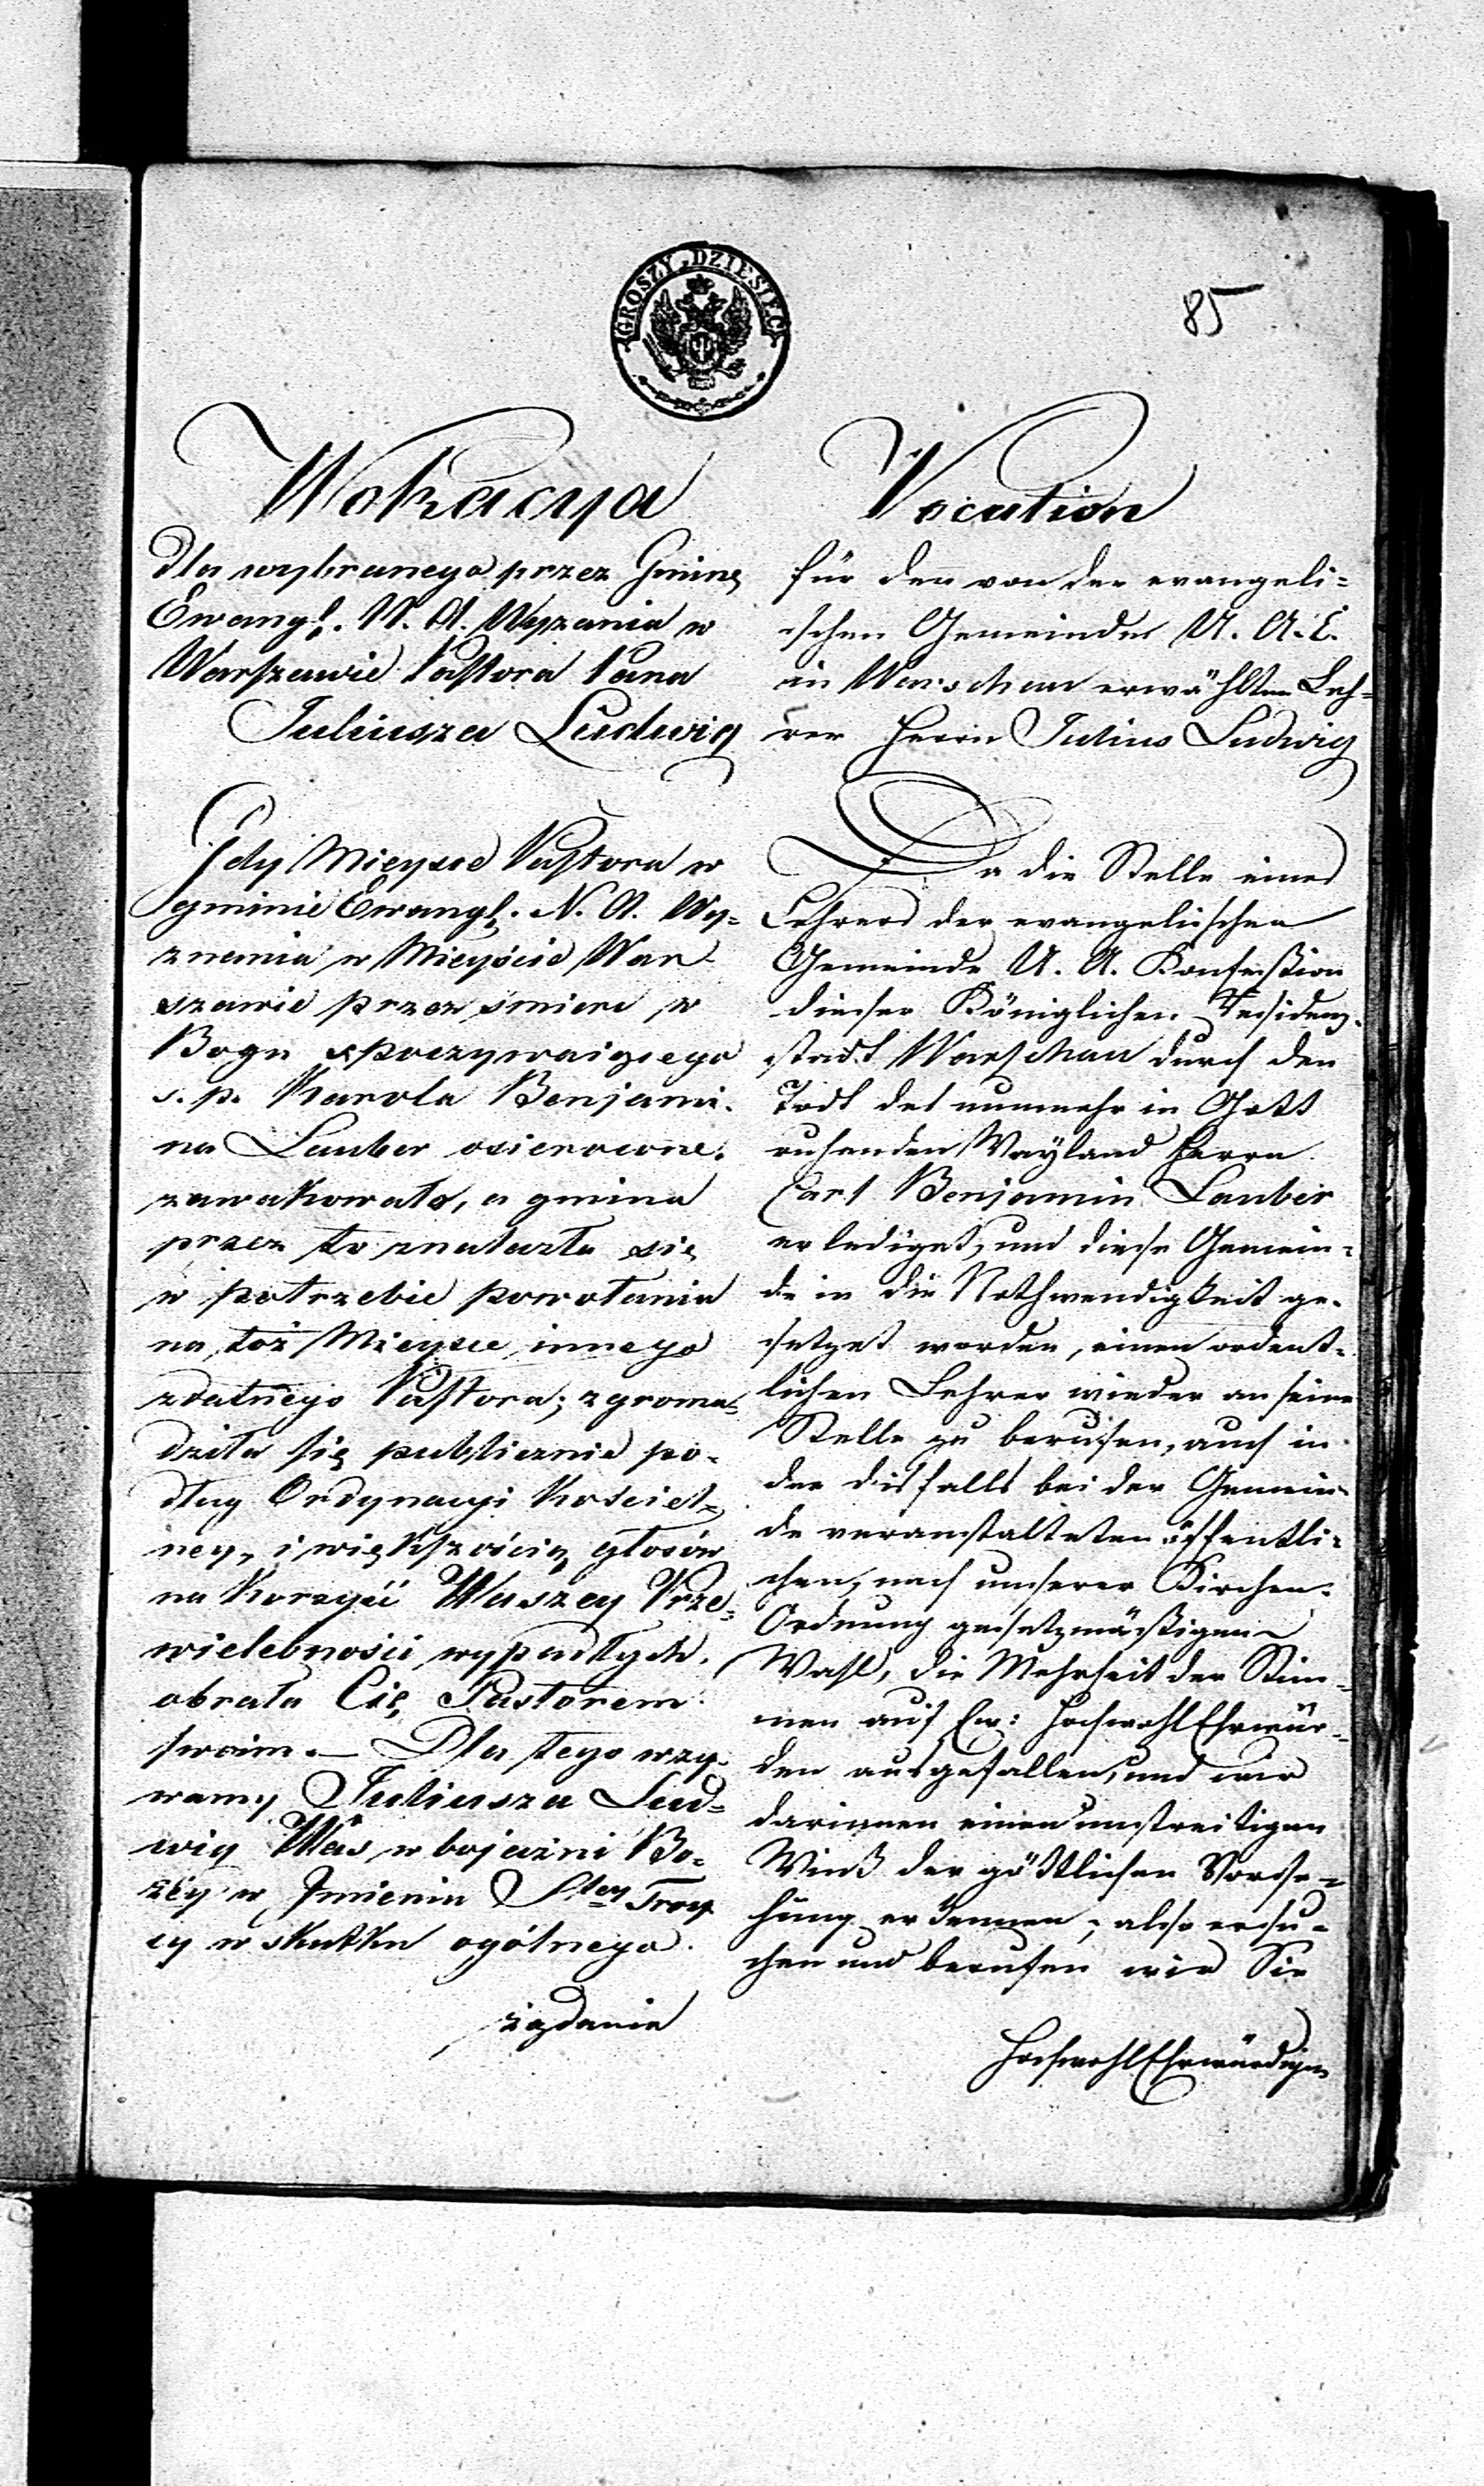 GROSZY DZIESIĘĆ
85
Wokacya
Dla wybranego przez Gminę
Ewangl. N. A. Wyznania w
Warszawie Pastora Pana
Juliusza Ludwig
Gdy Mieysce Pastora w
gminie Ewangl. N. A. Wy=
znania w Mieyście War-
szawie przez śmierć w
Bogu spoczywaiącego
s. p. Karola Benjami-
na Lauber osierocone
zawakowało, a gmina
przez to znalazła się
w potrzebie powołania
na toż Mieysce innego
zdatnego Pastora; zgroma=
dziła się publicznie po-
dług Ordynacyi Kościel=
ney, i większością głosów
na korzyść Waszey Prze=
wielebności wypadłych,
obrała Cię Pastorem
swoim. — Dla tego wzy-
wamy Juliusza Lud=
wig Was w bojaźni Bo=
żey w Imieniu Stey Troy
cy w skutku ogólnego
żądania
Vocation
für den von der evangeli=
schen Gemeinde U. A. C.
in Warschau erwählten Leh=
rer Herrn Julius Ludwig
Da die Stelle eines
Lehrers der evangelischen
Gemeinde U. A. Confession
dieser Königlichen Residenz-
stadt Warschau durch den
Todt des nunmehr in Gott
ruhenden Weyland Herrn
Carl Benjamin Lauber
erlediget, und diese Gemein=
de in die Nothwendigkeit ge-
setzet worden, einen ordent-
lichen Lehrer wieder an seine
Stelle zu berufen, auch in
der disfalls bei der Gemein-
de veranstalteten öffentli=
chen, nach unserer Kirchen-
Ordnung gesetzmäßigen
Wahl, die Mehrheit der Stim-
men auf Ew: HochwohlEhrwür-
den ausgefallen, und wir
darinnen einen unstreitigen
Wink der göttlichen Vorse=
hung erkennen; also ersu=
chen und berufen wir Sie
HochwohlEhrwürdigen